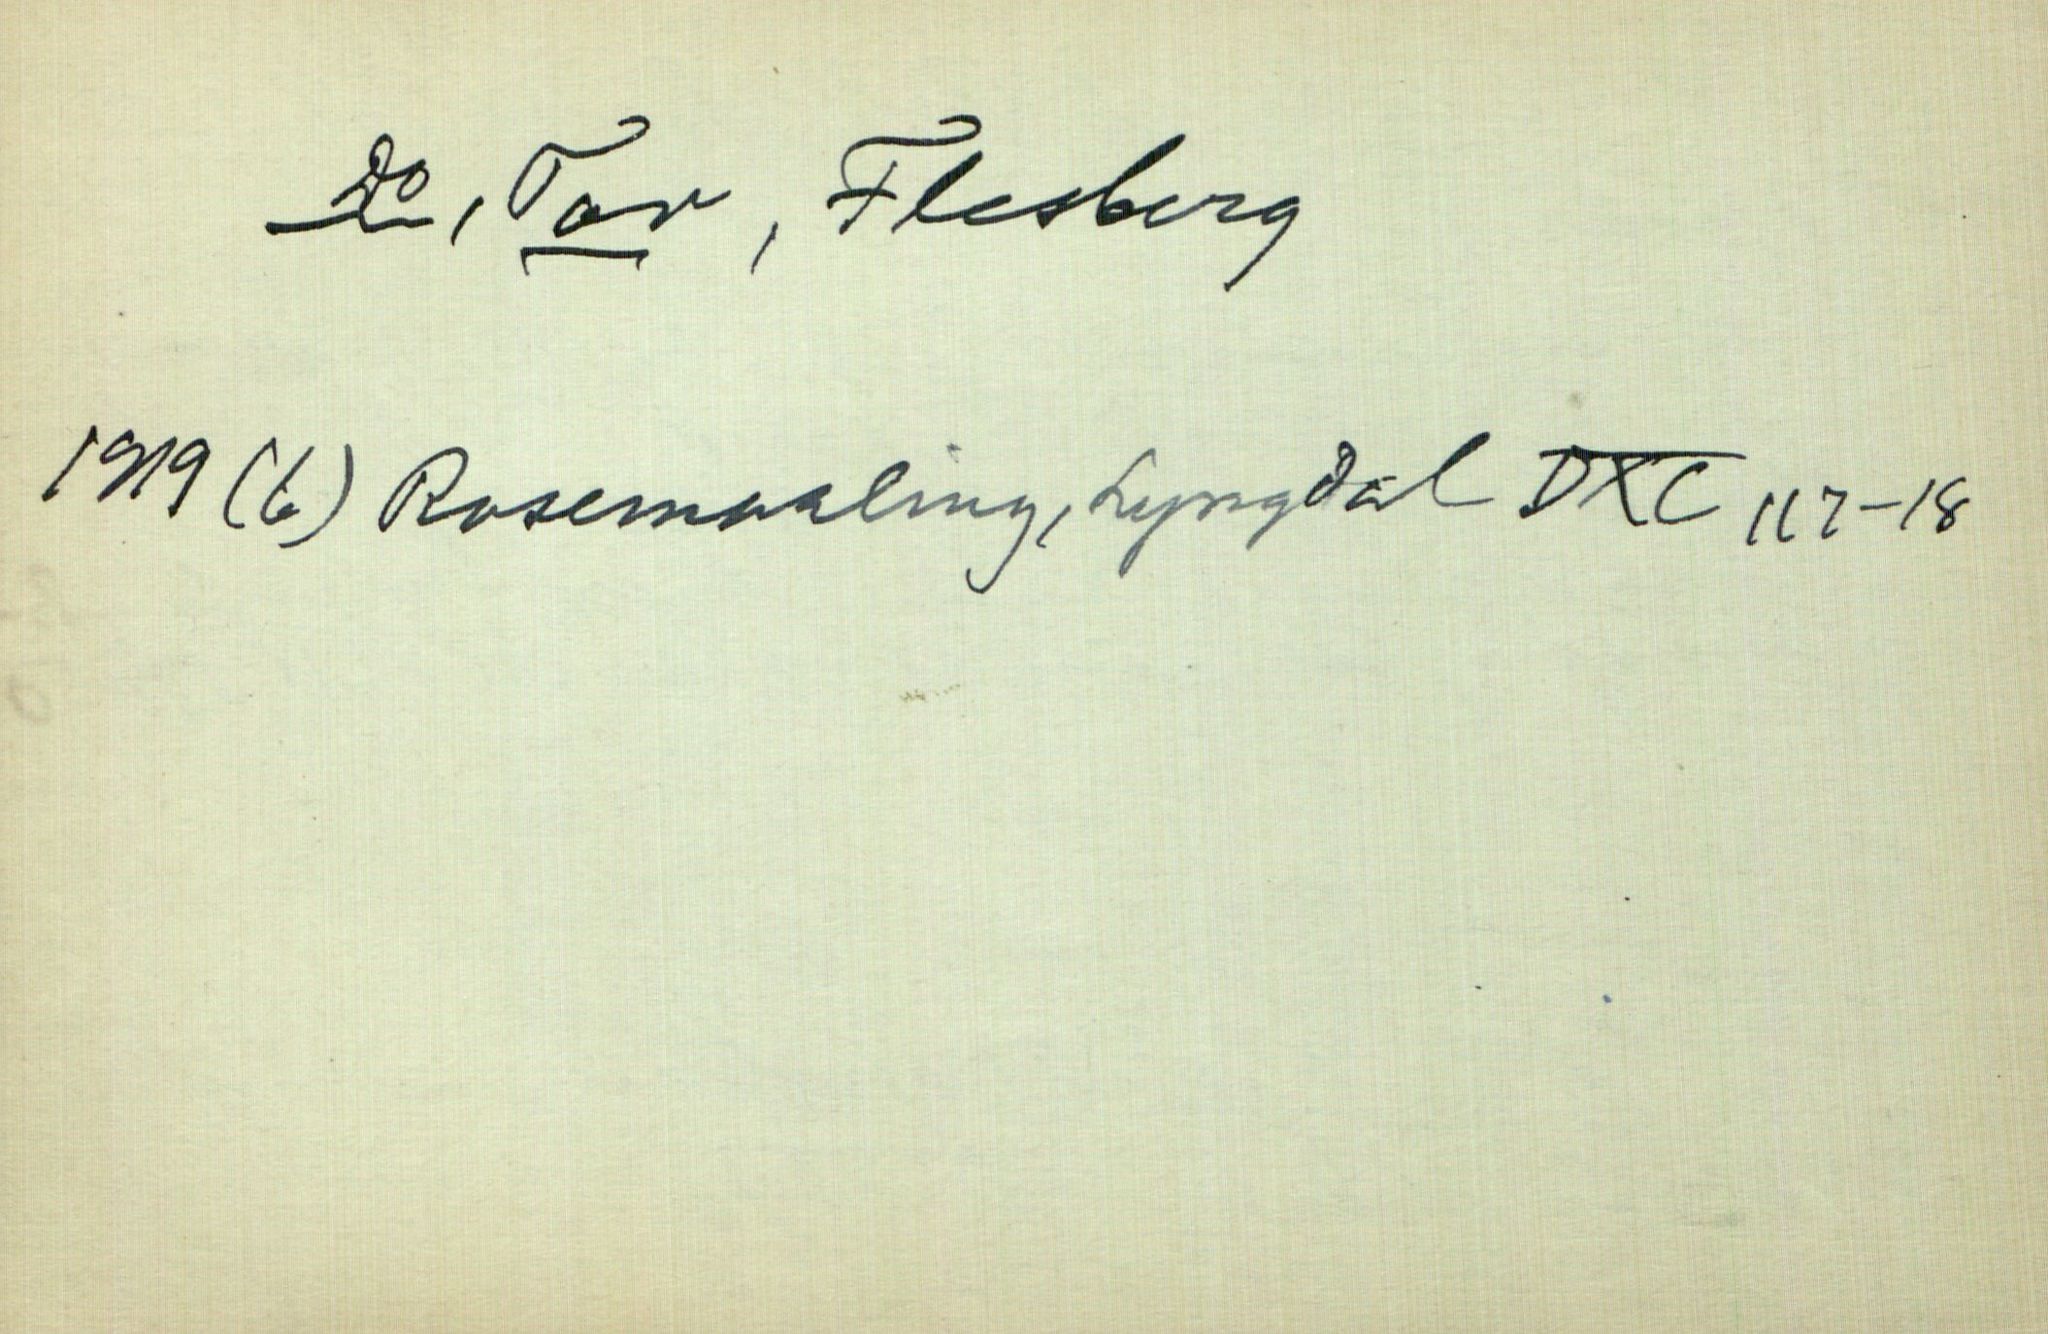 Do, Tov, Flesberg
1919 (6) Rosemaaling, Lyngdal DXC 117-18